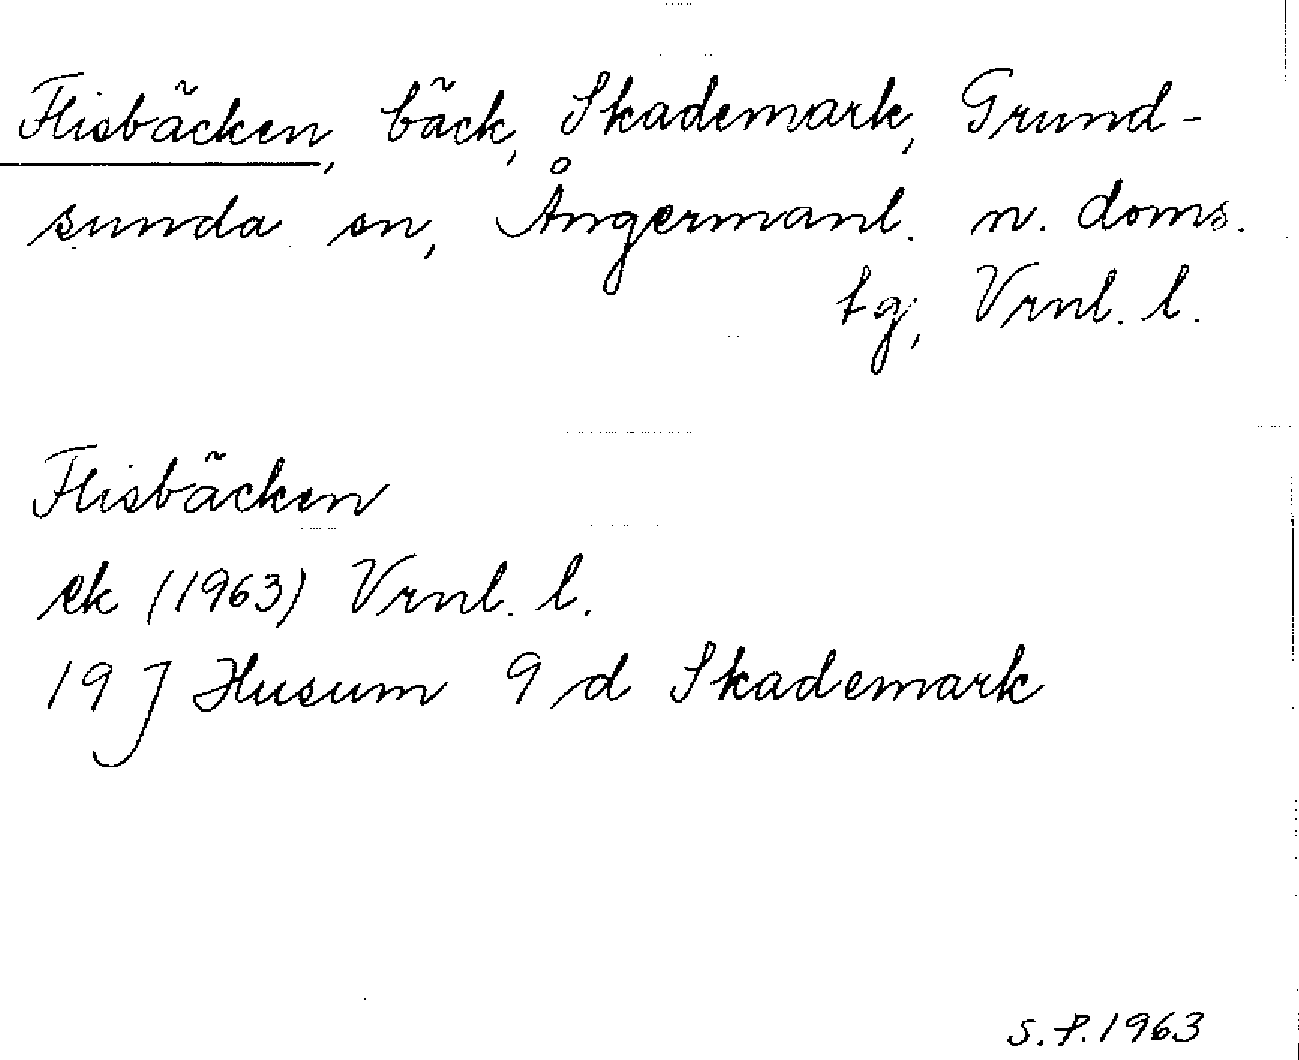 Flisbäcken, bäck, Skademark, Grund-
sunda sn, Ångermanl. n. doms.
tg, Vrnl. l.
Flisbäcken
ek (1963) Vrnl. l.
19 J Husum 9 d Skademark
S.P. 1963